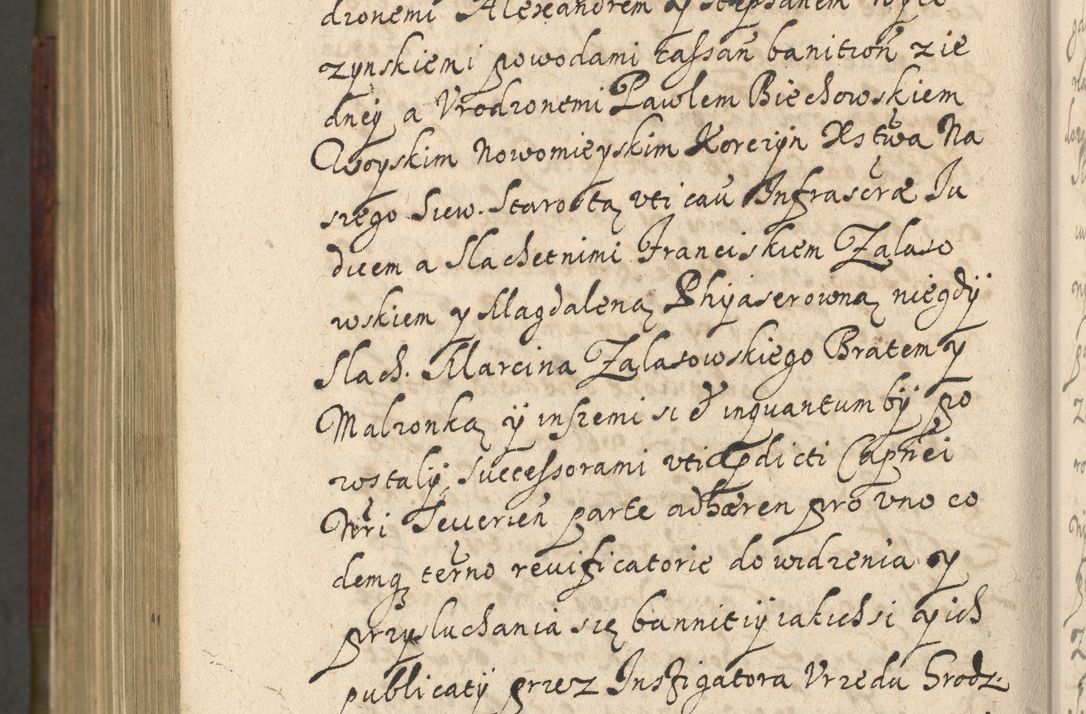 dzonemi Alexandrem y Stephanem
zynskiemi powodami cassań banition zie
dney a Vrodzonemi Pawlem Biechowskiem
Woyskim Nowomieyskim Korczyn Xstwa Na
szego Siew. Starostą vti cau Infrascræ Iu
dicem a Slachetnimi Franciskiem Zalaso
wskiem y Magdaleną Phijaserowną niegdÿ
Slach. Marcina Zalasowskiego Bratem y
Malzonką ÿ inszemi si &c inquantum bÿ po
wstalÿ successorami vti pdicti Capnei
Nri Seuerień parte adhæren pro vno eo
demq̨ termo reuificatorie do widzenia y
przysluchania się bannitiÿ iakichsi y ich
publicatÿ przez Instigatora Vrzedu Grodz.